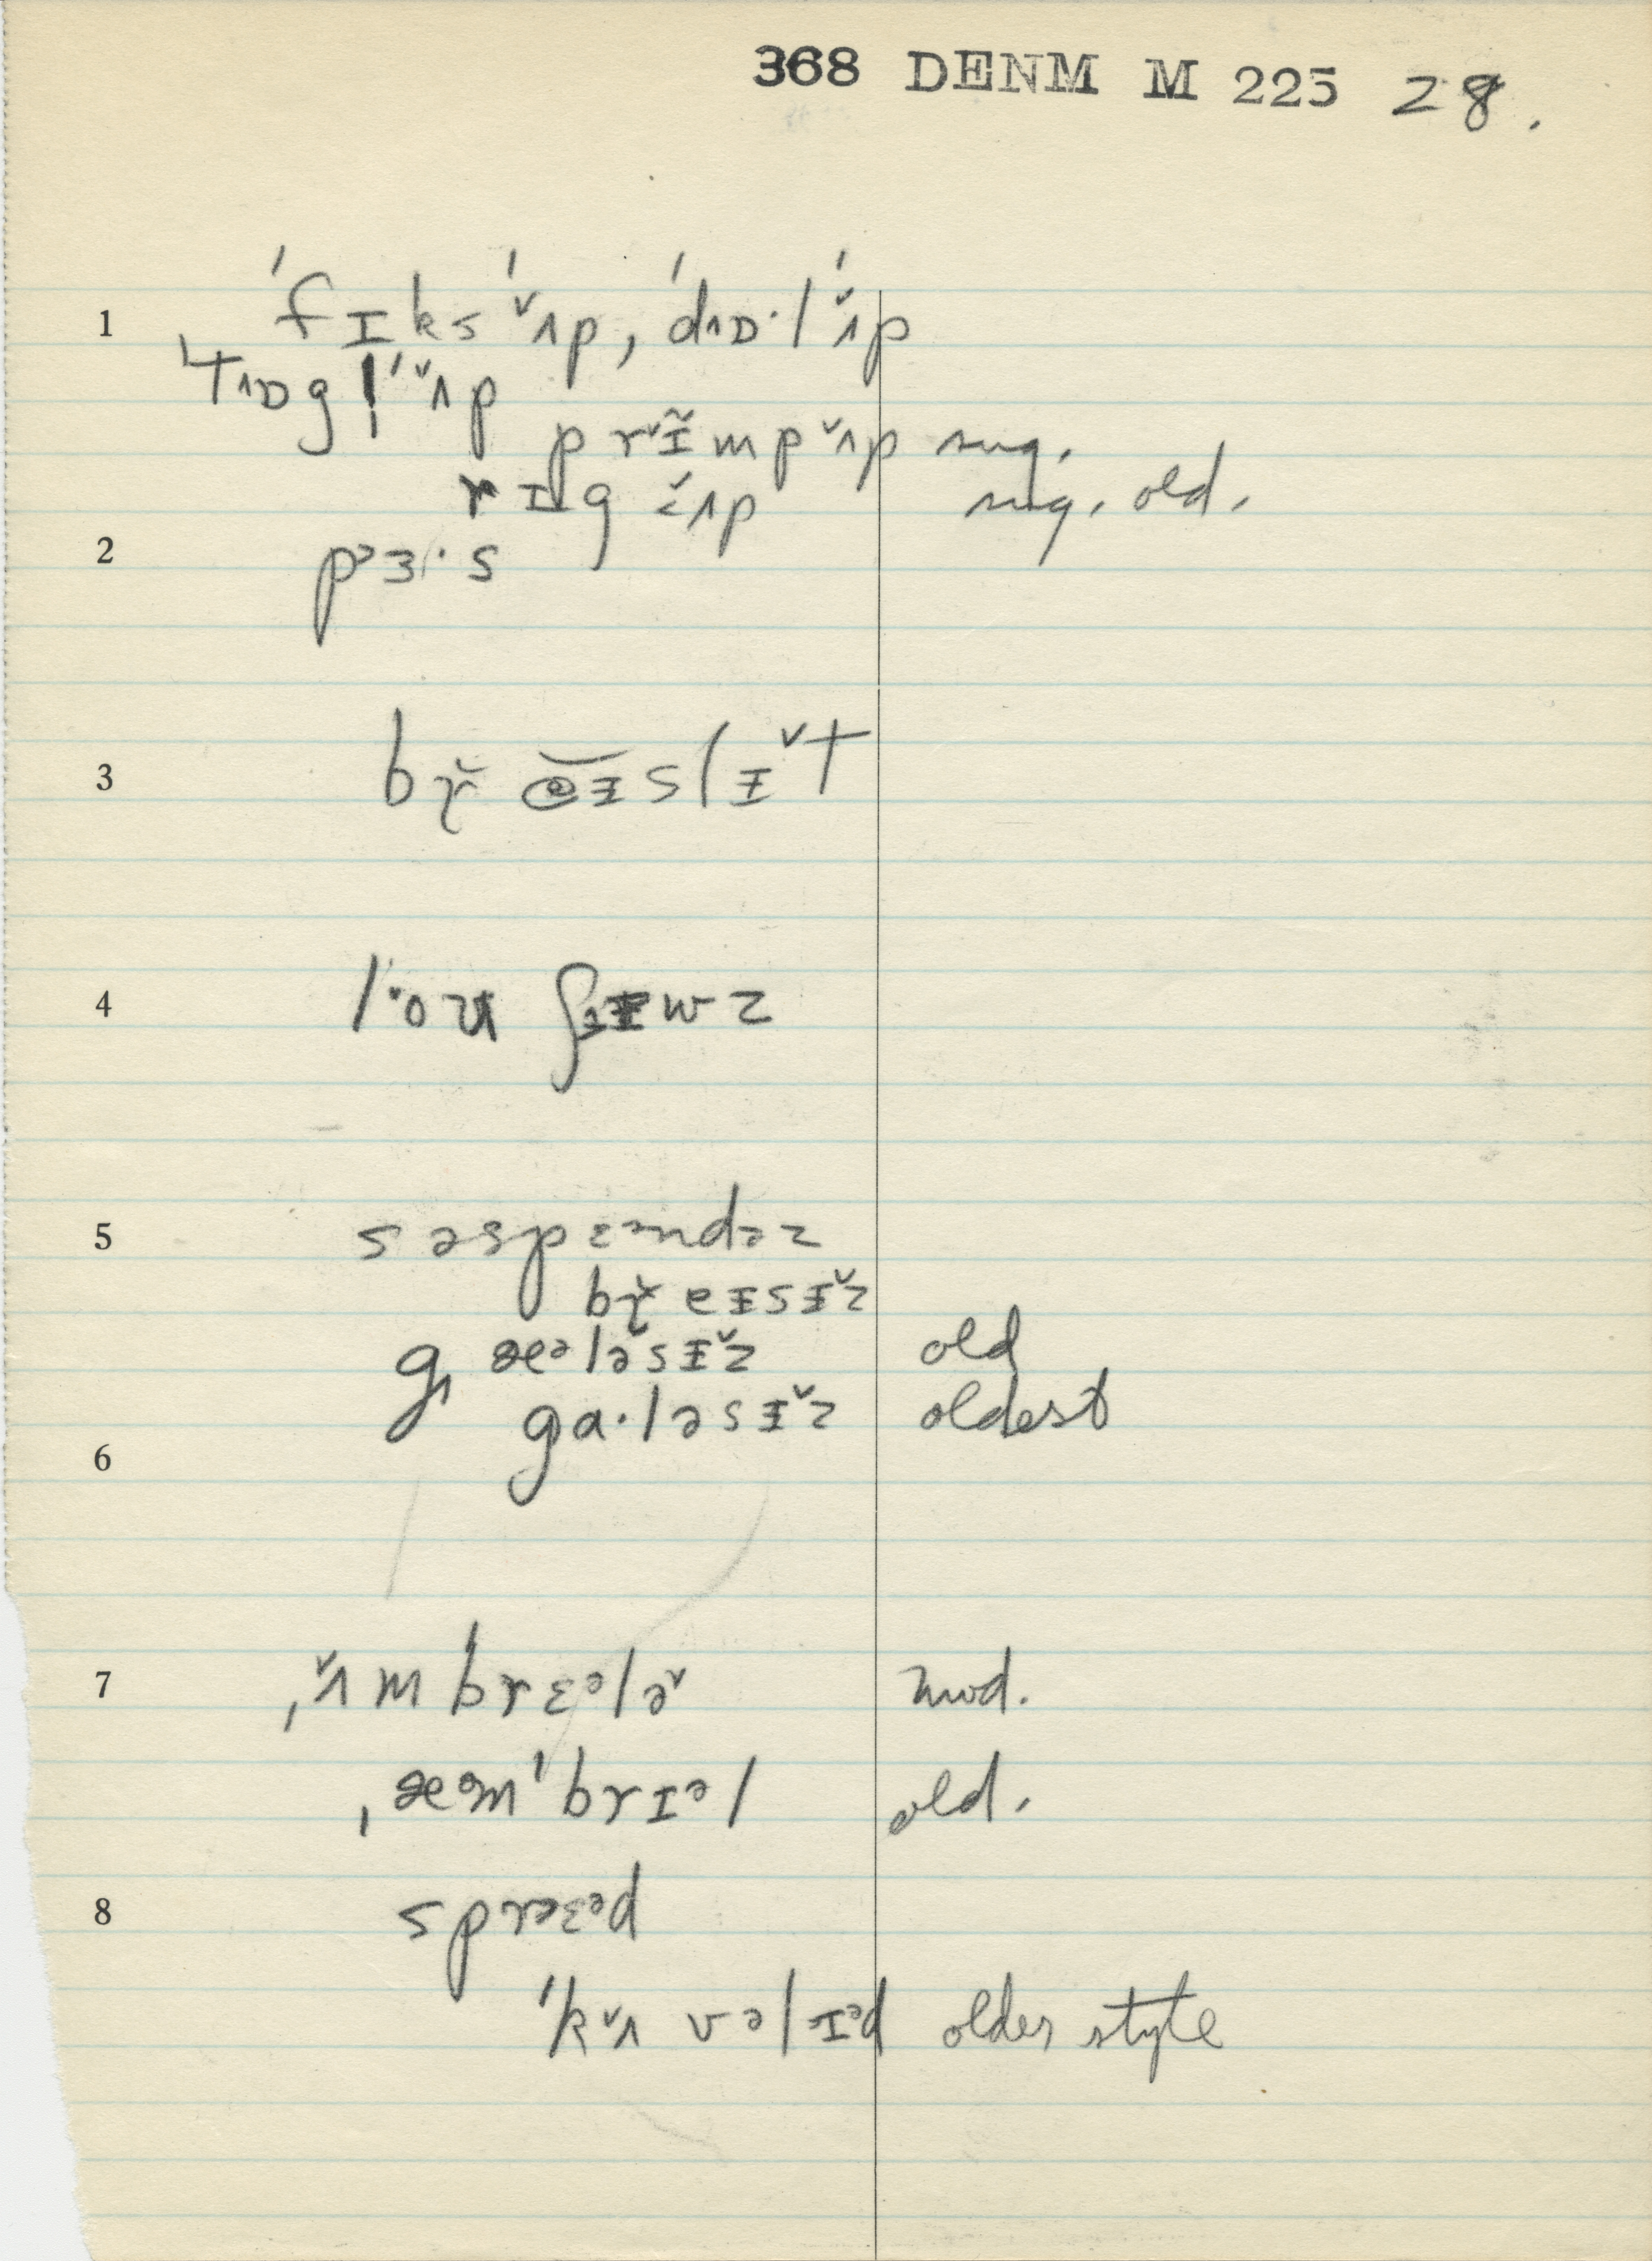 368 DENM M 225 28.
1 ˈfɪks ˈʌ̌p, ˈdɒ·l ˈʌ̌p
ˈtɒg! ˈʌ̌p
prɪ̌̃mpʌ̌p sug.
rɪg ʌ̌p sug. old.
2 pᵊɜ·s
3 bɤ̌ eɪslɪ̌t
4 l·oʊ ʃɪwz
5 səspɛᵊndəz
bɤ̌ eɪsɪ̌z
g æᵊlə̌sɪ̌z old
ga·ləsɪ̌z oldest
6
7 ˌʌ̌mbrɛᵊlə̌ mod.
ˌæᵊmˈbrɪᵊl old.
8 sprɛᵊd
ˈkʌ̌vəlɪᵊd older style